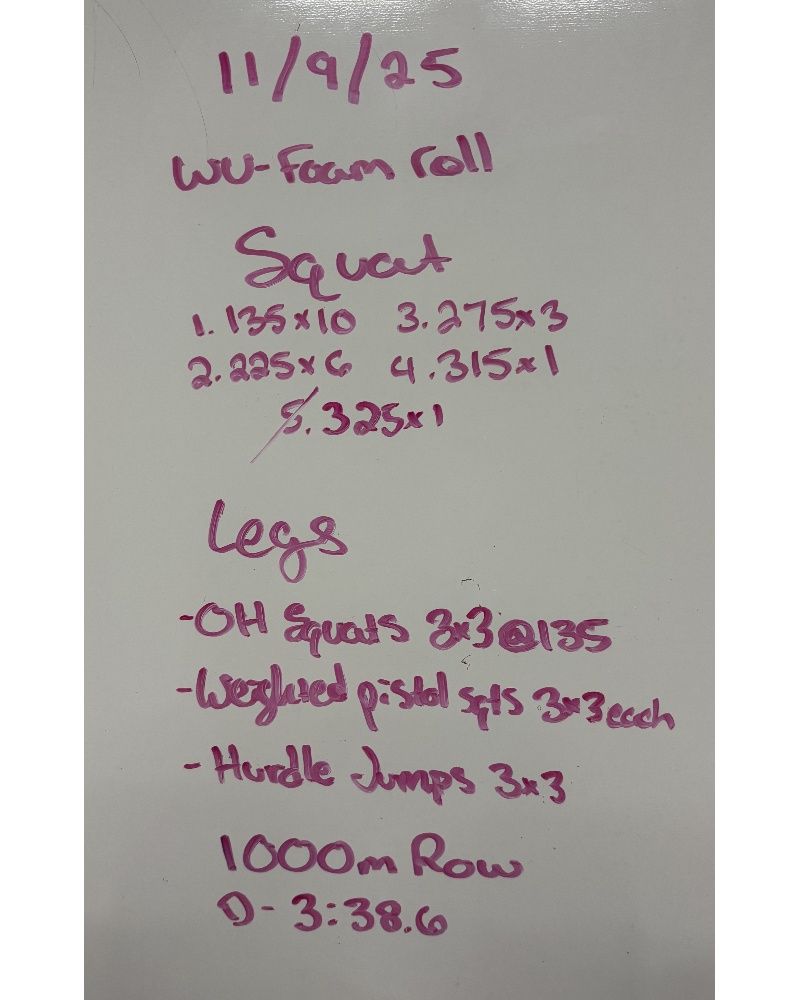 11/9/25
WU-Foam roll
Squat
1. 135x10 3. 275x3
2. 225x6 4. 315x1
5. 325x1
Legs
-OH Squats 3x3@135
-Weighted pistol sqts 3x3 each
- Hurdle Jumps 3x3
1000m Row
D- 3:38.6